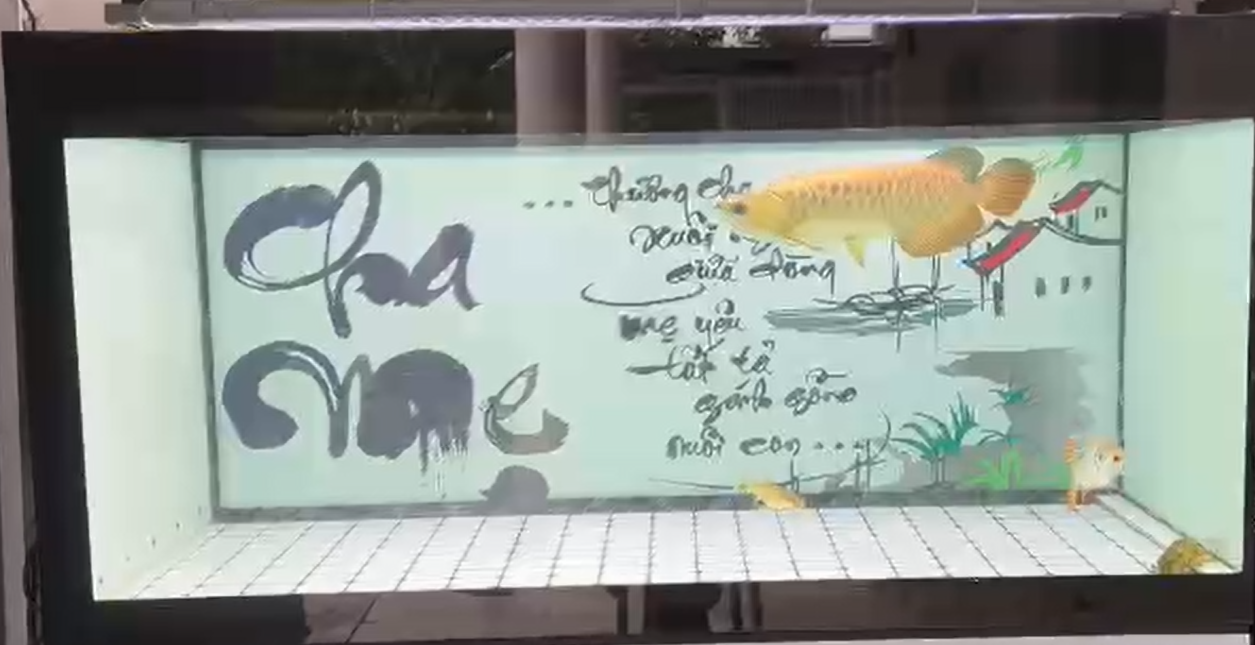 Cha
Mẹ
... Thương cha
nuôi
giữa dòng
mẹ yêu
tất tả
gánh gồng
nuôi con ....